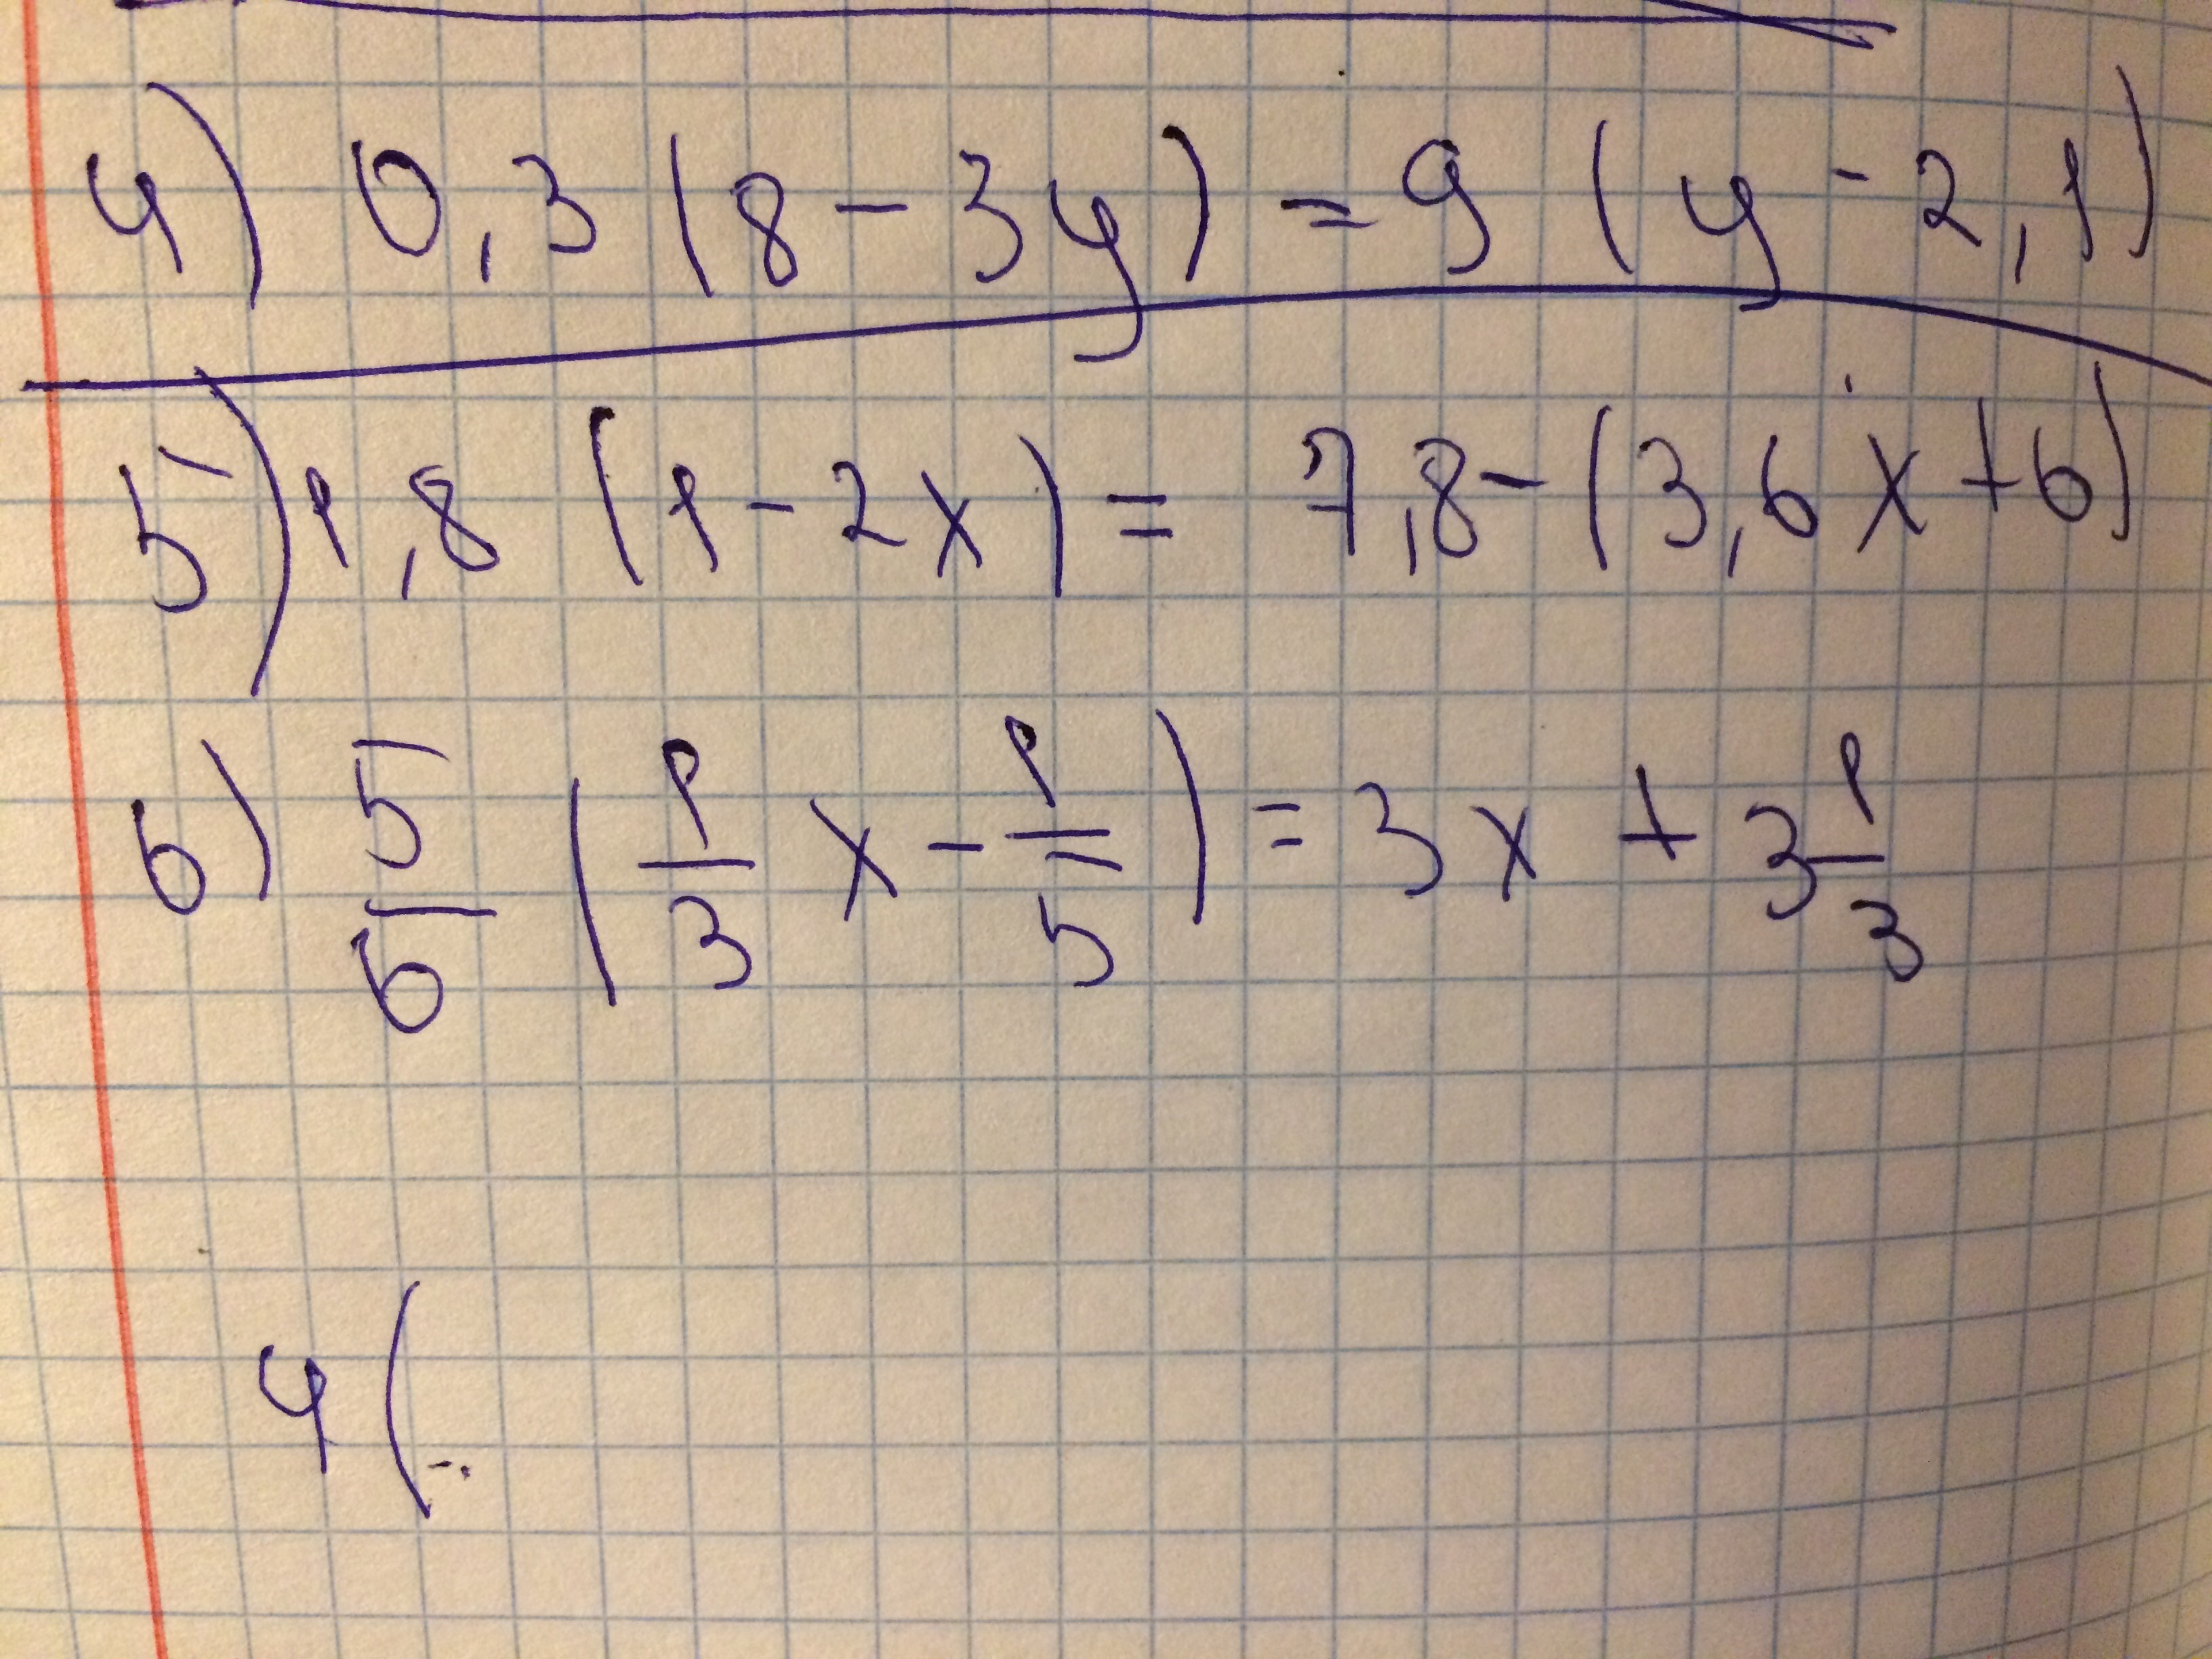 4) 0,3 (8 - 3y) = 9 (y - 2,1)
5) 1,8 (1 - 2x) = 7,8 - (3,6x + 6)
6) 5/6 (1/3 x - 1/5) = 3x + 3 1/3
4(